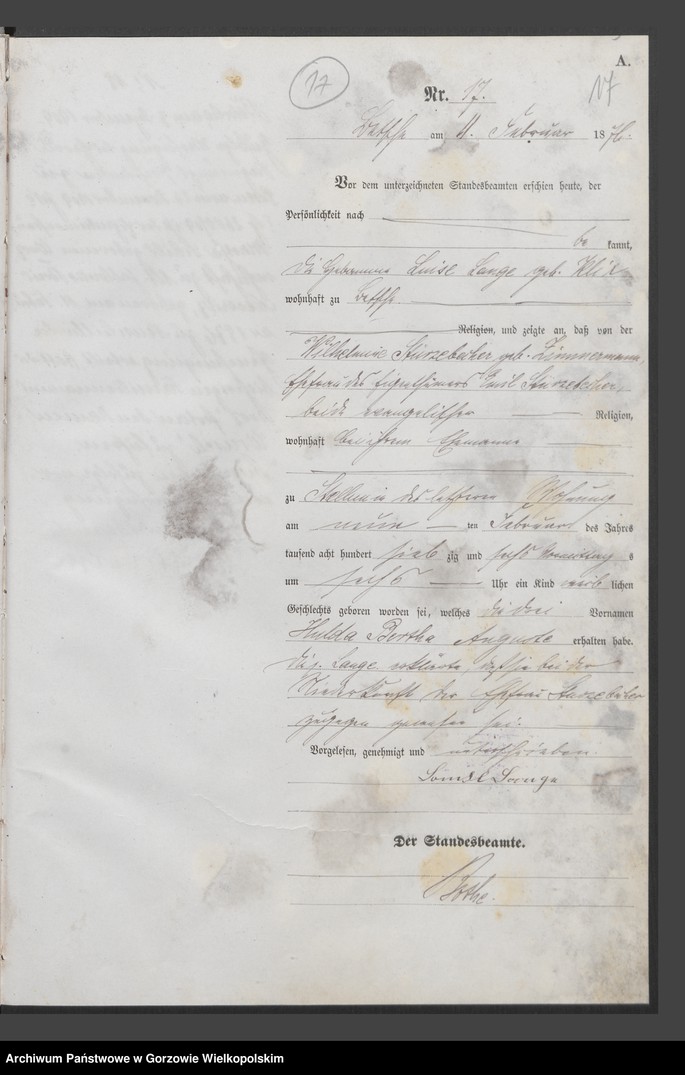 A.
17
Nr. 17.
17
Betsche am 11. Februar 1876.
Vor dem unterzeichneten Standesbeamten erschien heute, der
Persönlichkeit nach
be kannt,
die Hebamme Luise Lange geb. Klix
wohnhaft zu Betsche
Religion, und zeigte an, daß von der
Wilhelmine Sturzebecher, geb. Zimmermann,
Ehefrau des Eigenthümers Emil Sturzebecher,
beide evangelischer Religion,
wohnhaft bei ihrem Ehemanne
zu in des letzteren Wohnung
am neun ten Februar des Jahres
tausend acht hundert sieb zig und sechs Vormittag s
um sechs Uhr ein Kind weib lichen
Geschlechts geboren worden sei, welches die drei Vornamen
Hulda Bertha Auguste erhalten habe.
Die p. Lange erklärte, daß sie bei der
Niederkunft der Ehefrau Sturzebecher
zugegen gewesen sei.
Vorgelesen, genehmigt und unterschrieben.
Louise Lange
Der Standesbeamte.
Archiwum Państwowe w Gorzowie Wielkopolskim